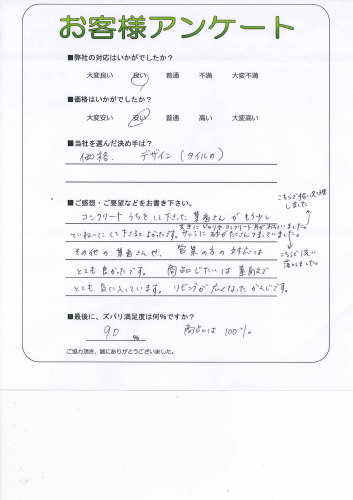 お客様アンケート
■弊社の対応はいかがでしたか？
大変良い 良い 普通 不満 大変不満
■価格はいかがでしたか？
大変安い 安い 普通 高い 大変高い
■当社を選んだ決め手は？
価格. デザイン (タイルの)
■ご感想・ご要望などをお書き下さい。
こちらで 処理
しました
コンクリートうちをして下さた 業者さんがもう少し
ていねいにして下さるとよかったです。サッシに砂がたくさんつまっていました。
その他の業者さんや、営業の方の対応は
こちらで洗い
落としました。
とても良かったです。 商品じたいは素敵で
とても気に入っています。リビングが広くなったかんじです。
■最後に、ズバリ満足度は何%ですか？
90 % 商品は 100%
ご協力頂き、誠にありがとうございました。